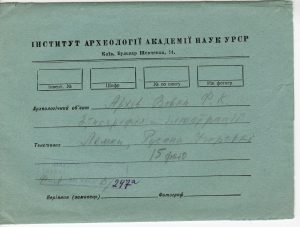 ІНСТИТУТ АРХЕОЛОГІЇ АКАДЕМІЇ НАУК УРСР
Київ, Бульвар Шевченка, 14.
Інвент. № Шифр № по опису Рік фотогр.
Археологічний об'єкт Архів Вовка Ф. К.
Лемки, Русини Угорські
15 фото
247а
Керівник Фотограф